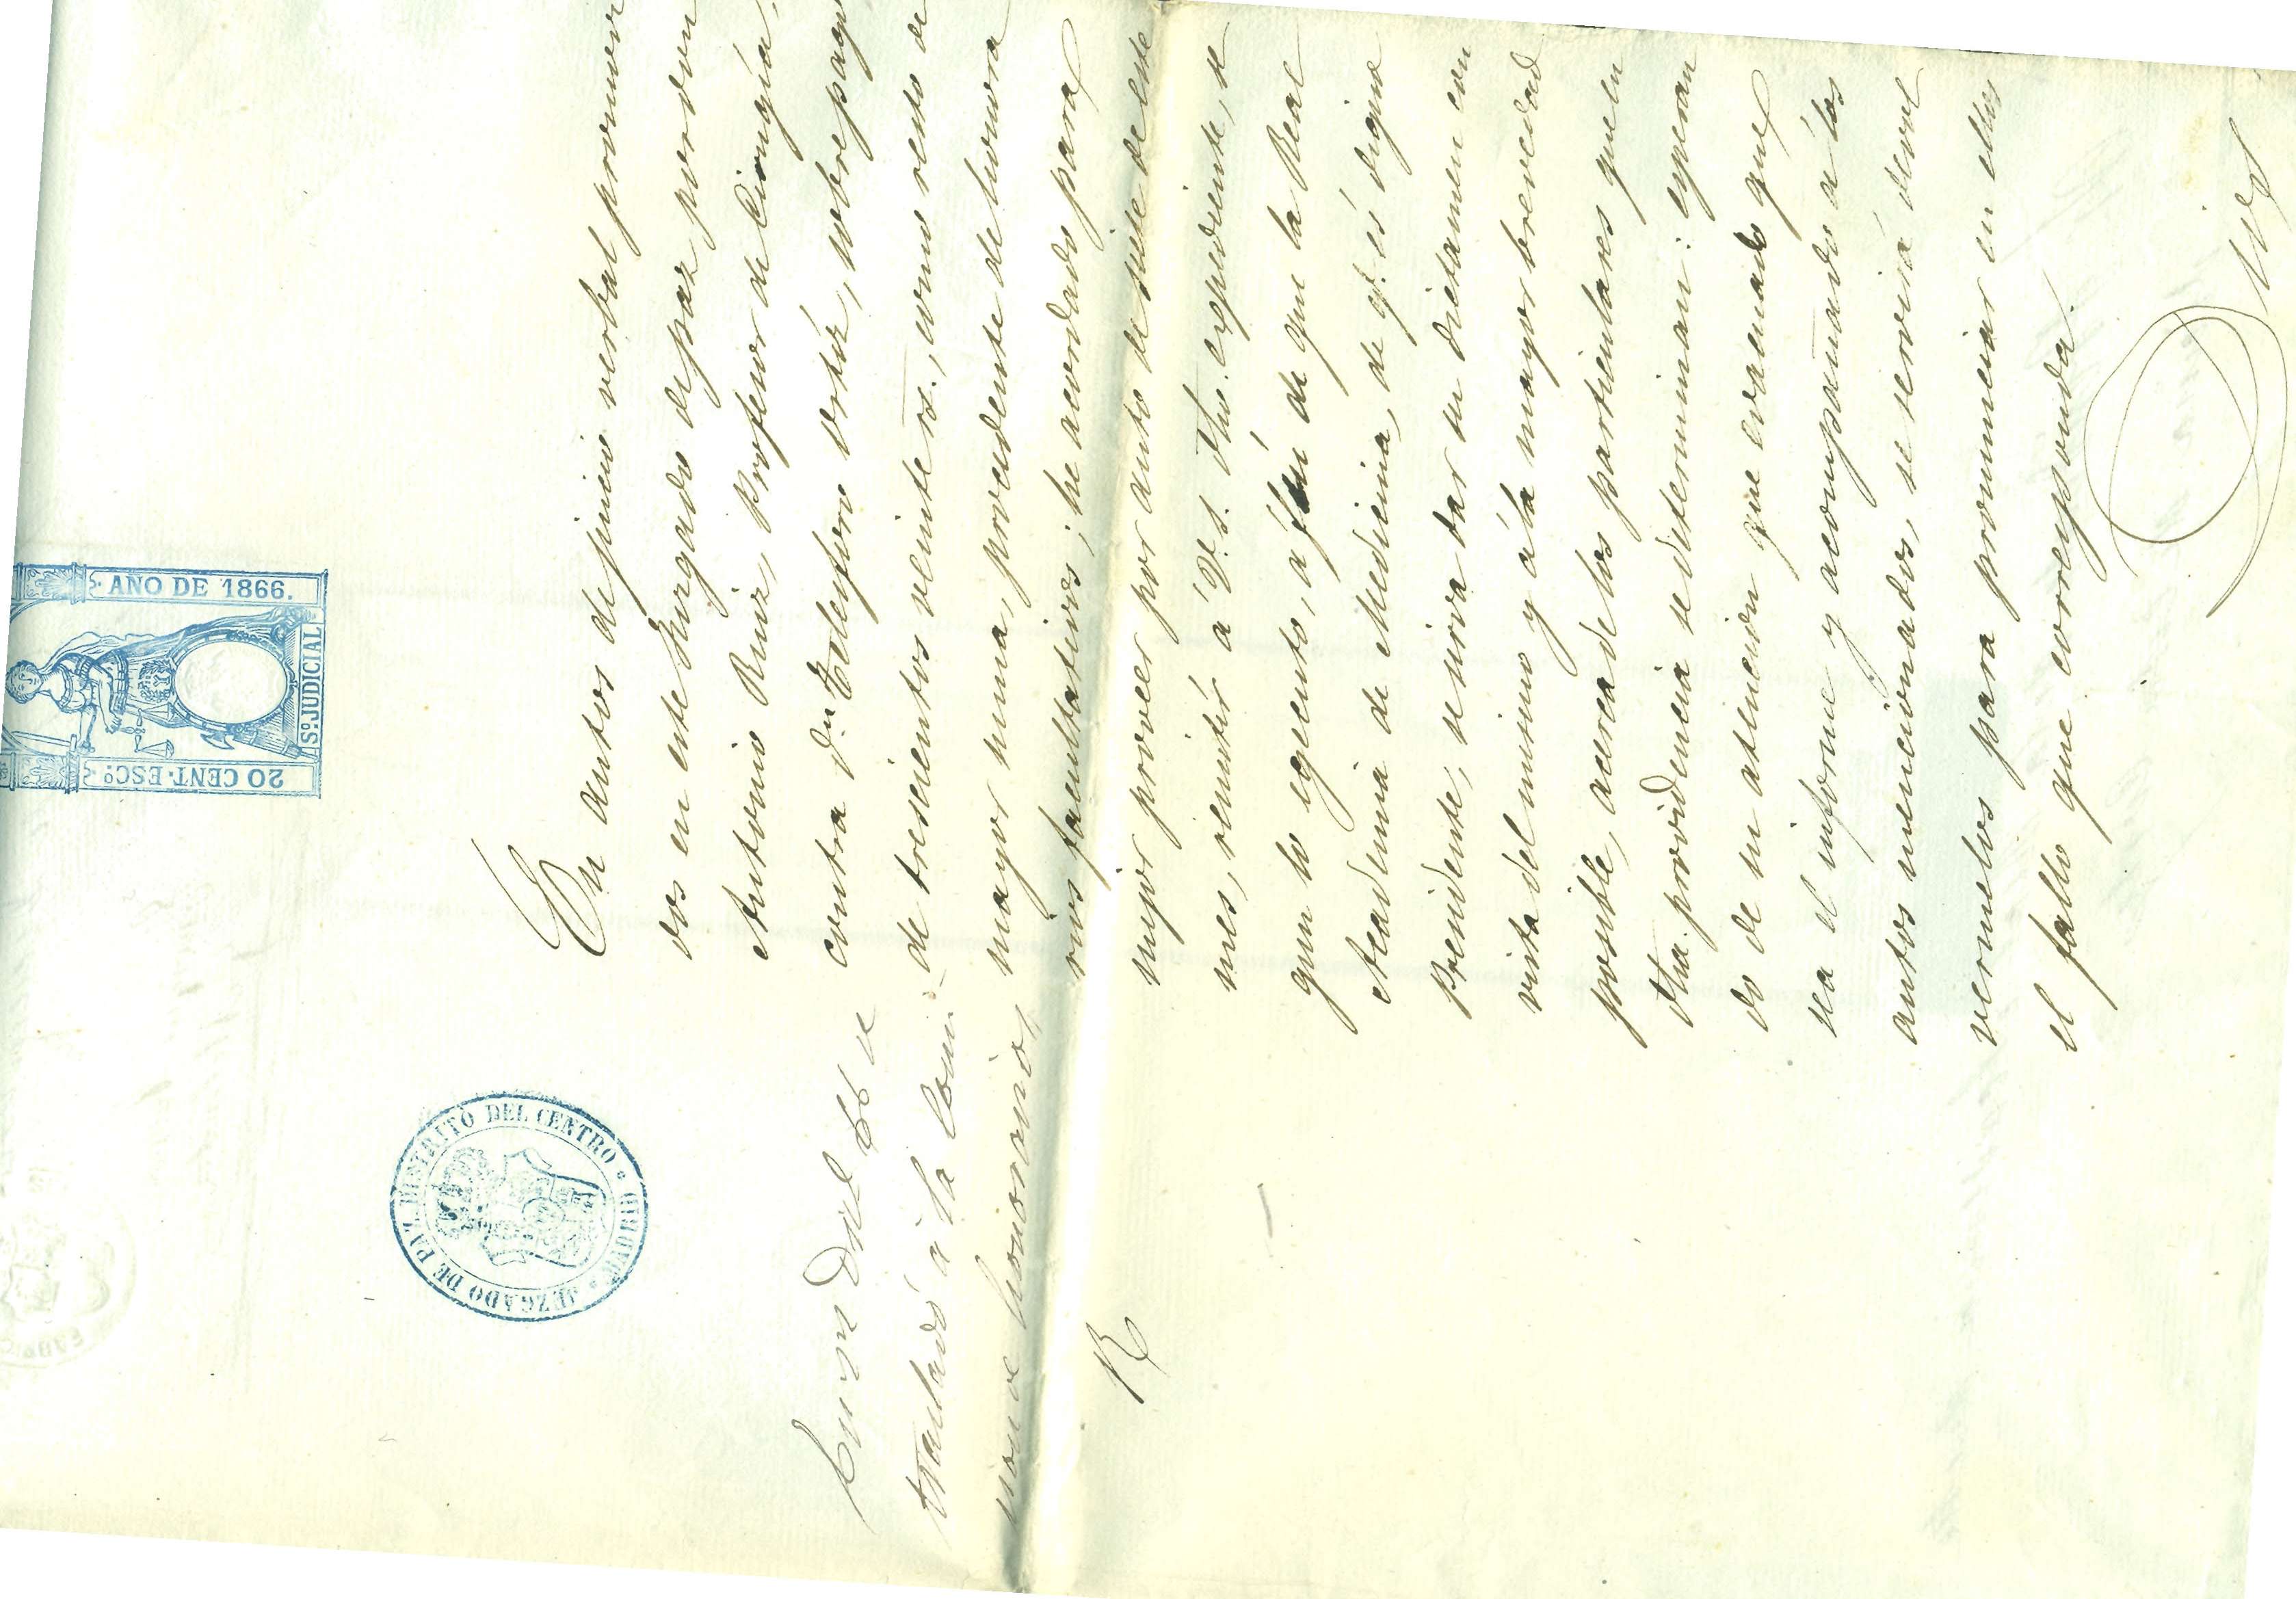 AÑO DE 1866.
Sº. JUDICIAL
20 CENT. ESCº.
JUZGADO DE PAZ. DISTRITO DEL CENTRO * MADRID *
En autos de juicio verbal promovi
dos en este Juzgado de paz por don
Antonio Ruiz, Profesor de Cirugía,
contra Dn. Telesforo Ortiz, sobre pago
de trescientos veinte rs., como resto de
mayor suma, procedente de honora
rios facultativos; he acordado para
mejor proveer por auto de siete de este
mes, remitir á V. S. dho. espediente, se
gun lo egecuto, á fin de que la Real
Academia de Medicina, de qe. es digno
Presidente, se sirva dar su dictamen con
vista del mismo y á la mayor brevedad
posible, acerca de los particulares que en
dha. providencia se determinan: esperan
do de su atencion que evacuado que
sea el informe y acompañado á los
autos mencionados, se servirá devol
vermelos para pronunciar en ellos
el fallo que corresponda.
66 se
trasladó á la Comi
sion de honorarios
R